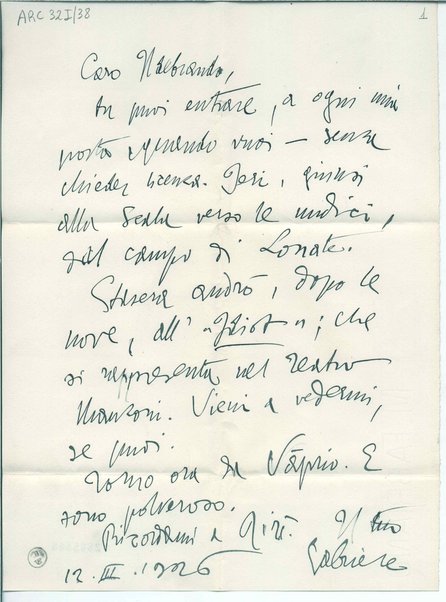 ARC 32 I/38
1
Caro Ildebrando,
tu puoi entrare, a ogni mia
porta quando vuoi – senza
chieder licenza. Ieri, giunsi
alla Scala verso le undici,
dal campo di Lonate.
Stasera andrò, dopo le
nove, all' "Idiot"; che
si rappresenta nel Teatro
Manzoni. Vieni a vedermi,
se puoi.
Torno ora da Vaprio. E
sono polveroso.
Ricordami a
Il tuo
Gabriele
12. III. 1926